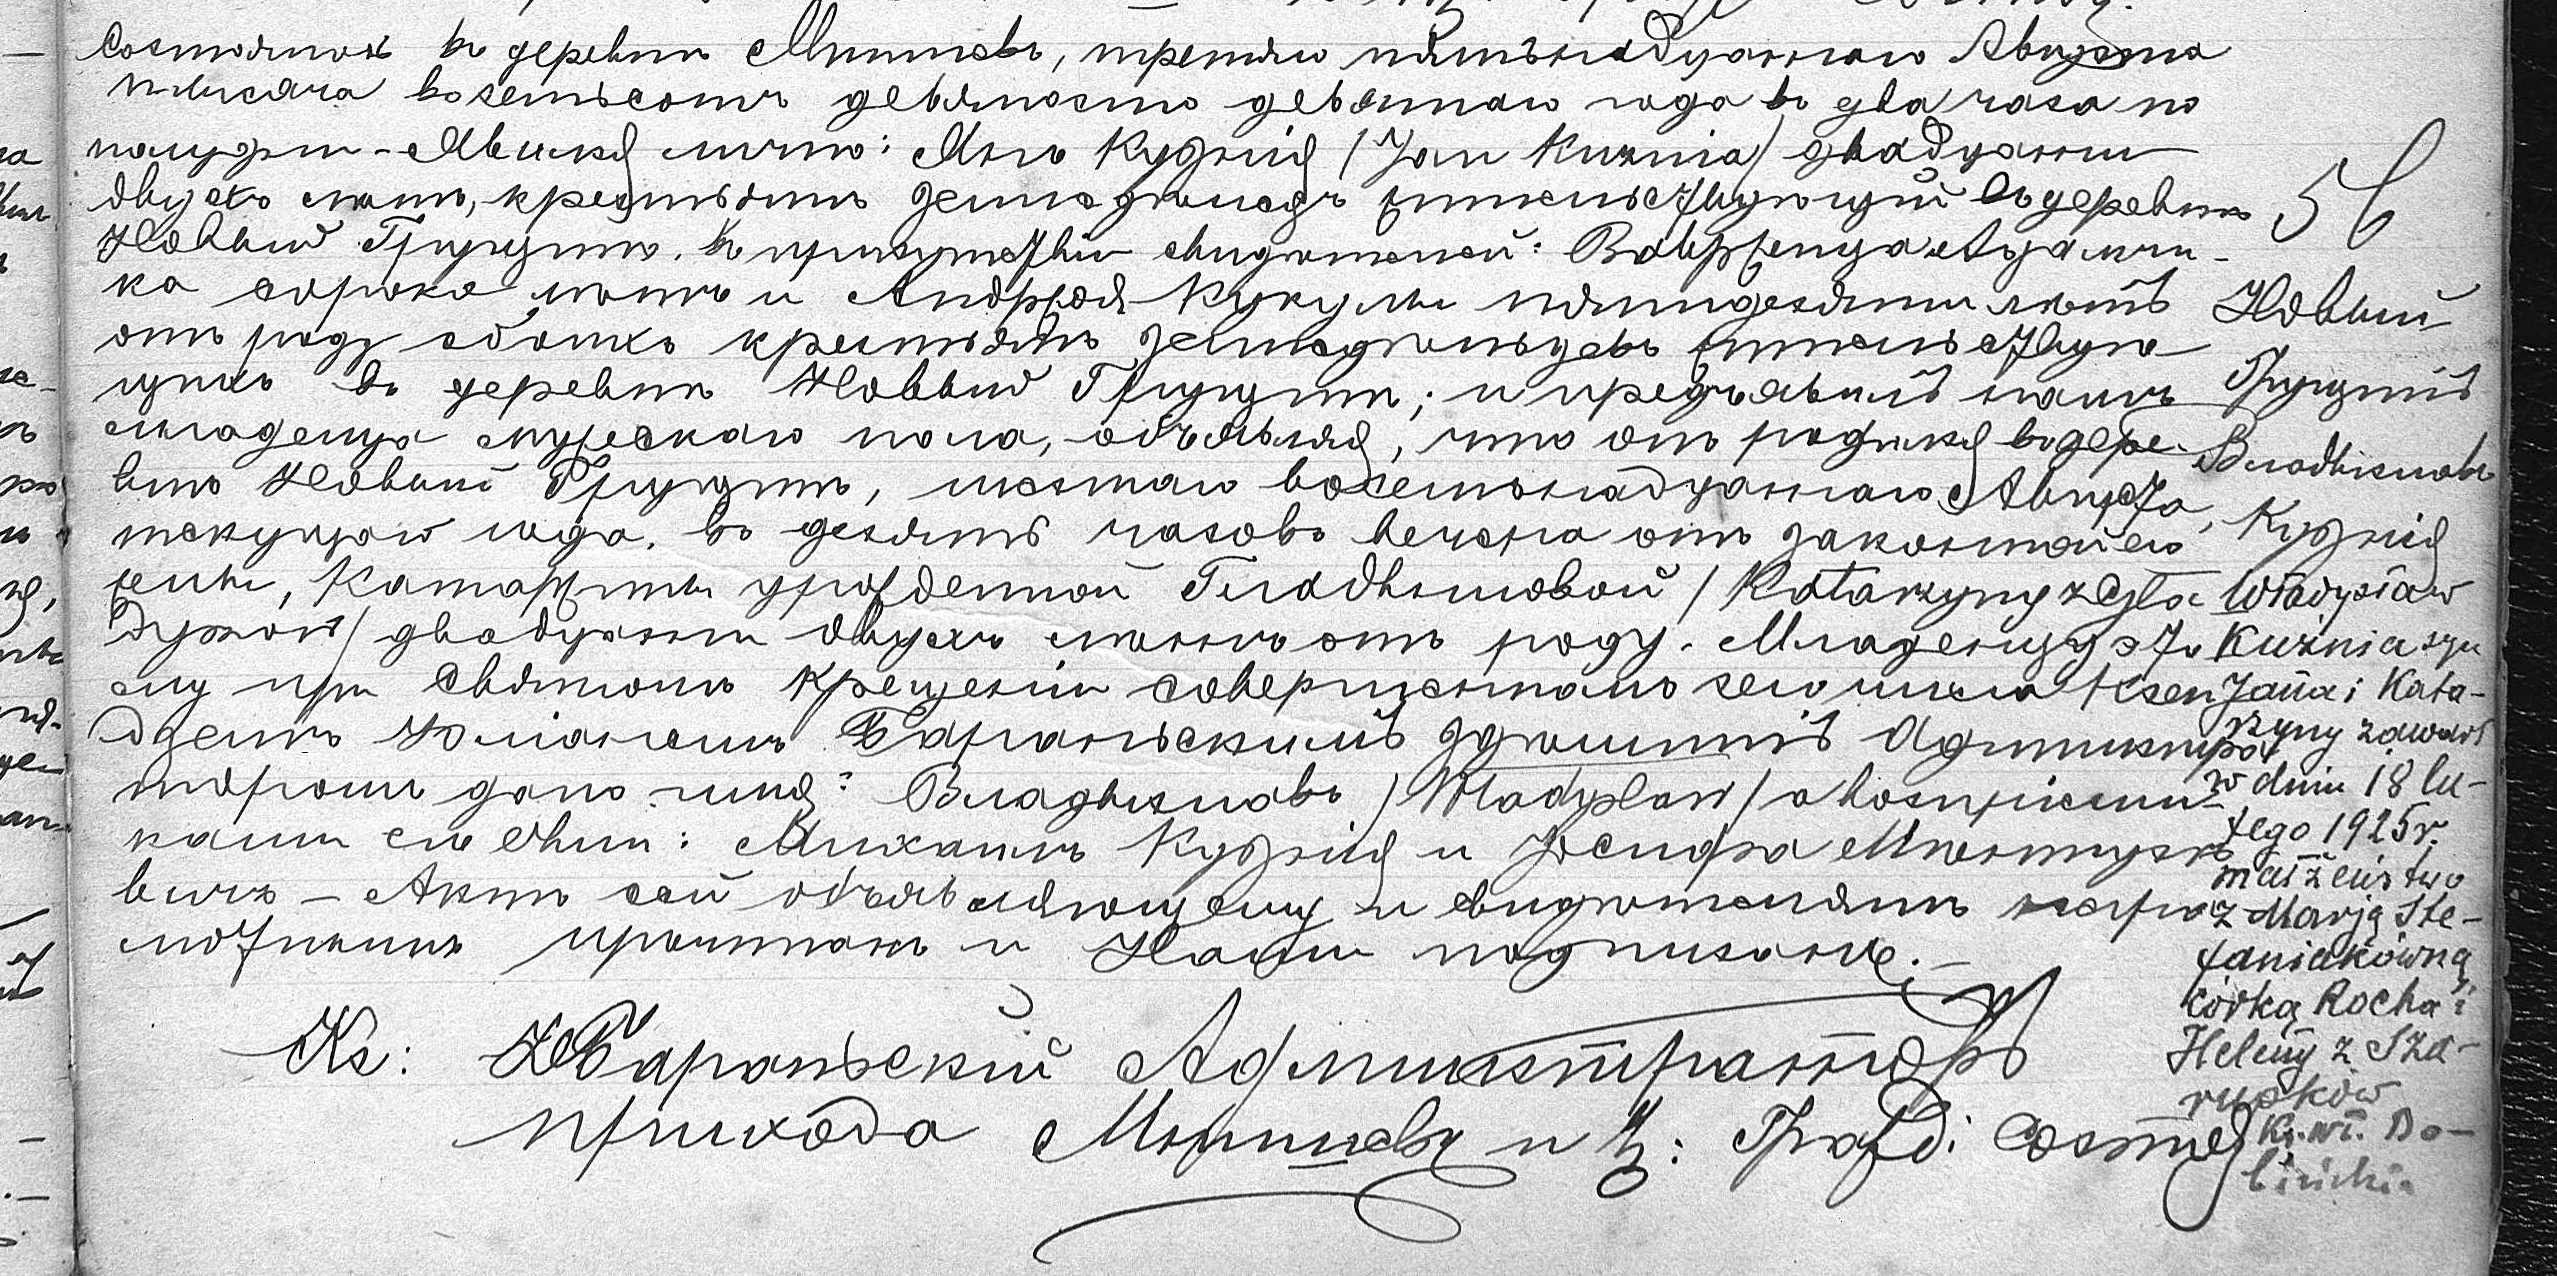 Состоялось въ деревни Минневъ, третяго пятьнадцатаго Августа
тысяча восемьсотъ девяносто девятаго года въ два часа по
полудни – Явился лично: Янъ Кузьня /Jan Kuznia/ двадцати
двухъ летъ, крестьянъ земледелецъ жительствующій въ деревни
Новый Грудзинъ. въ присутствіи свидетелей: Вавржеңца Адамчи-
ка сорока летъ и Андржея Кукулы пятидесяти летъ
отъ роду обоихъ крестьянъ земледельцевъ жительствую
щихъ въ деревни Новый Грудзинъ; и предъявилъ намъ
младенца мужескаго пола, объявляя, что онъ родился въ дере-
вни Новый Грудзинъ, шестаго восемьнадцатаго Августа,
текущаго года. въ десять часовъ вечера отъ законной его
жены, Катаржины урожденной Гладышовой /Katarzyny z Gła
dyszów/ двадцати двухъ летъ отъ роду. Младенцу это
му при Святомъ Крещеніи совершенномъ сего числа Ксен
дземъ Юліаномъ Бараньскимъ здешнимъ Администра
торомъ дано имя: Владыславъ /Władysław/ а воспріемни
ками его были: Михаилъ Кузьня и Юсифа
вичъ – Актъ сей объявляющему и свидетелямъ негра
мотнымъ прочитанъ и Нами подписанъ. –
Кs: ЮБараньскій Администраторъ
прихода и Ч: Гражд: Состоя
56
Новый
Грудзинъ
Владыславъ
Кузьня
Władysław
Kuźnia syn
Jana i Kata-
rzyny zawarł
w dniu 18 lu-
tego 1925 r.
małżeństwo
z Marją Ste-
faniakówną
córką Rocha i
Heleny z Sza-
rusków
Ks. Wł. Do-